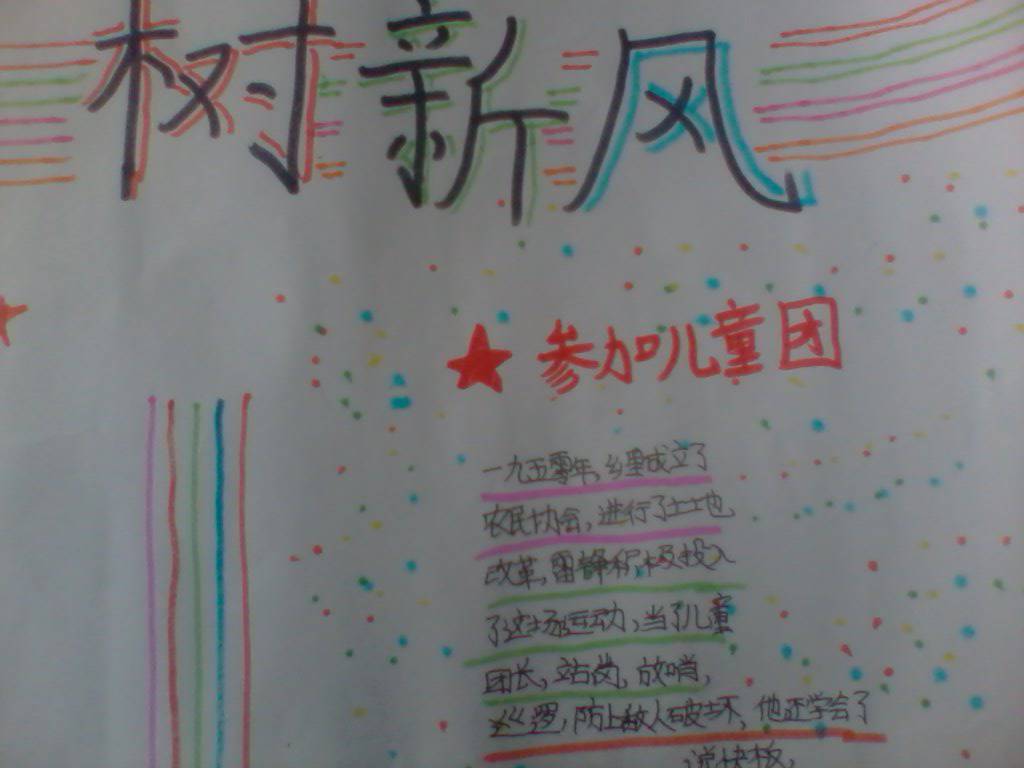 树新风
★参加儿童团
一九五零年,乡里成立了
农民协会,进行了土地
改革,雷锋积极投入
了这场运动,当了儿童
团长,站岗,放哨,
巡逻,防止敌人破坏,他还学会了
说快板,